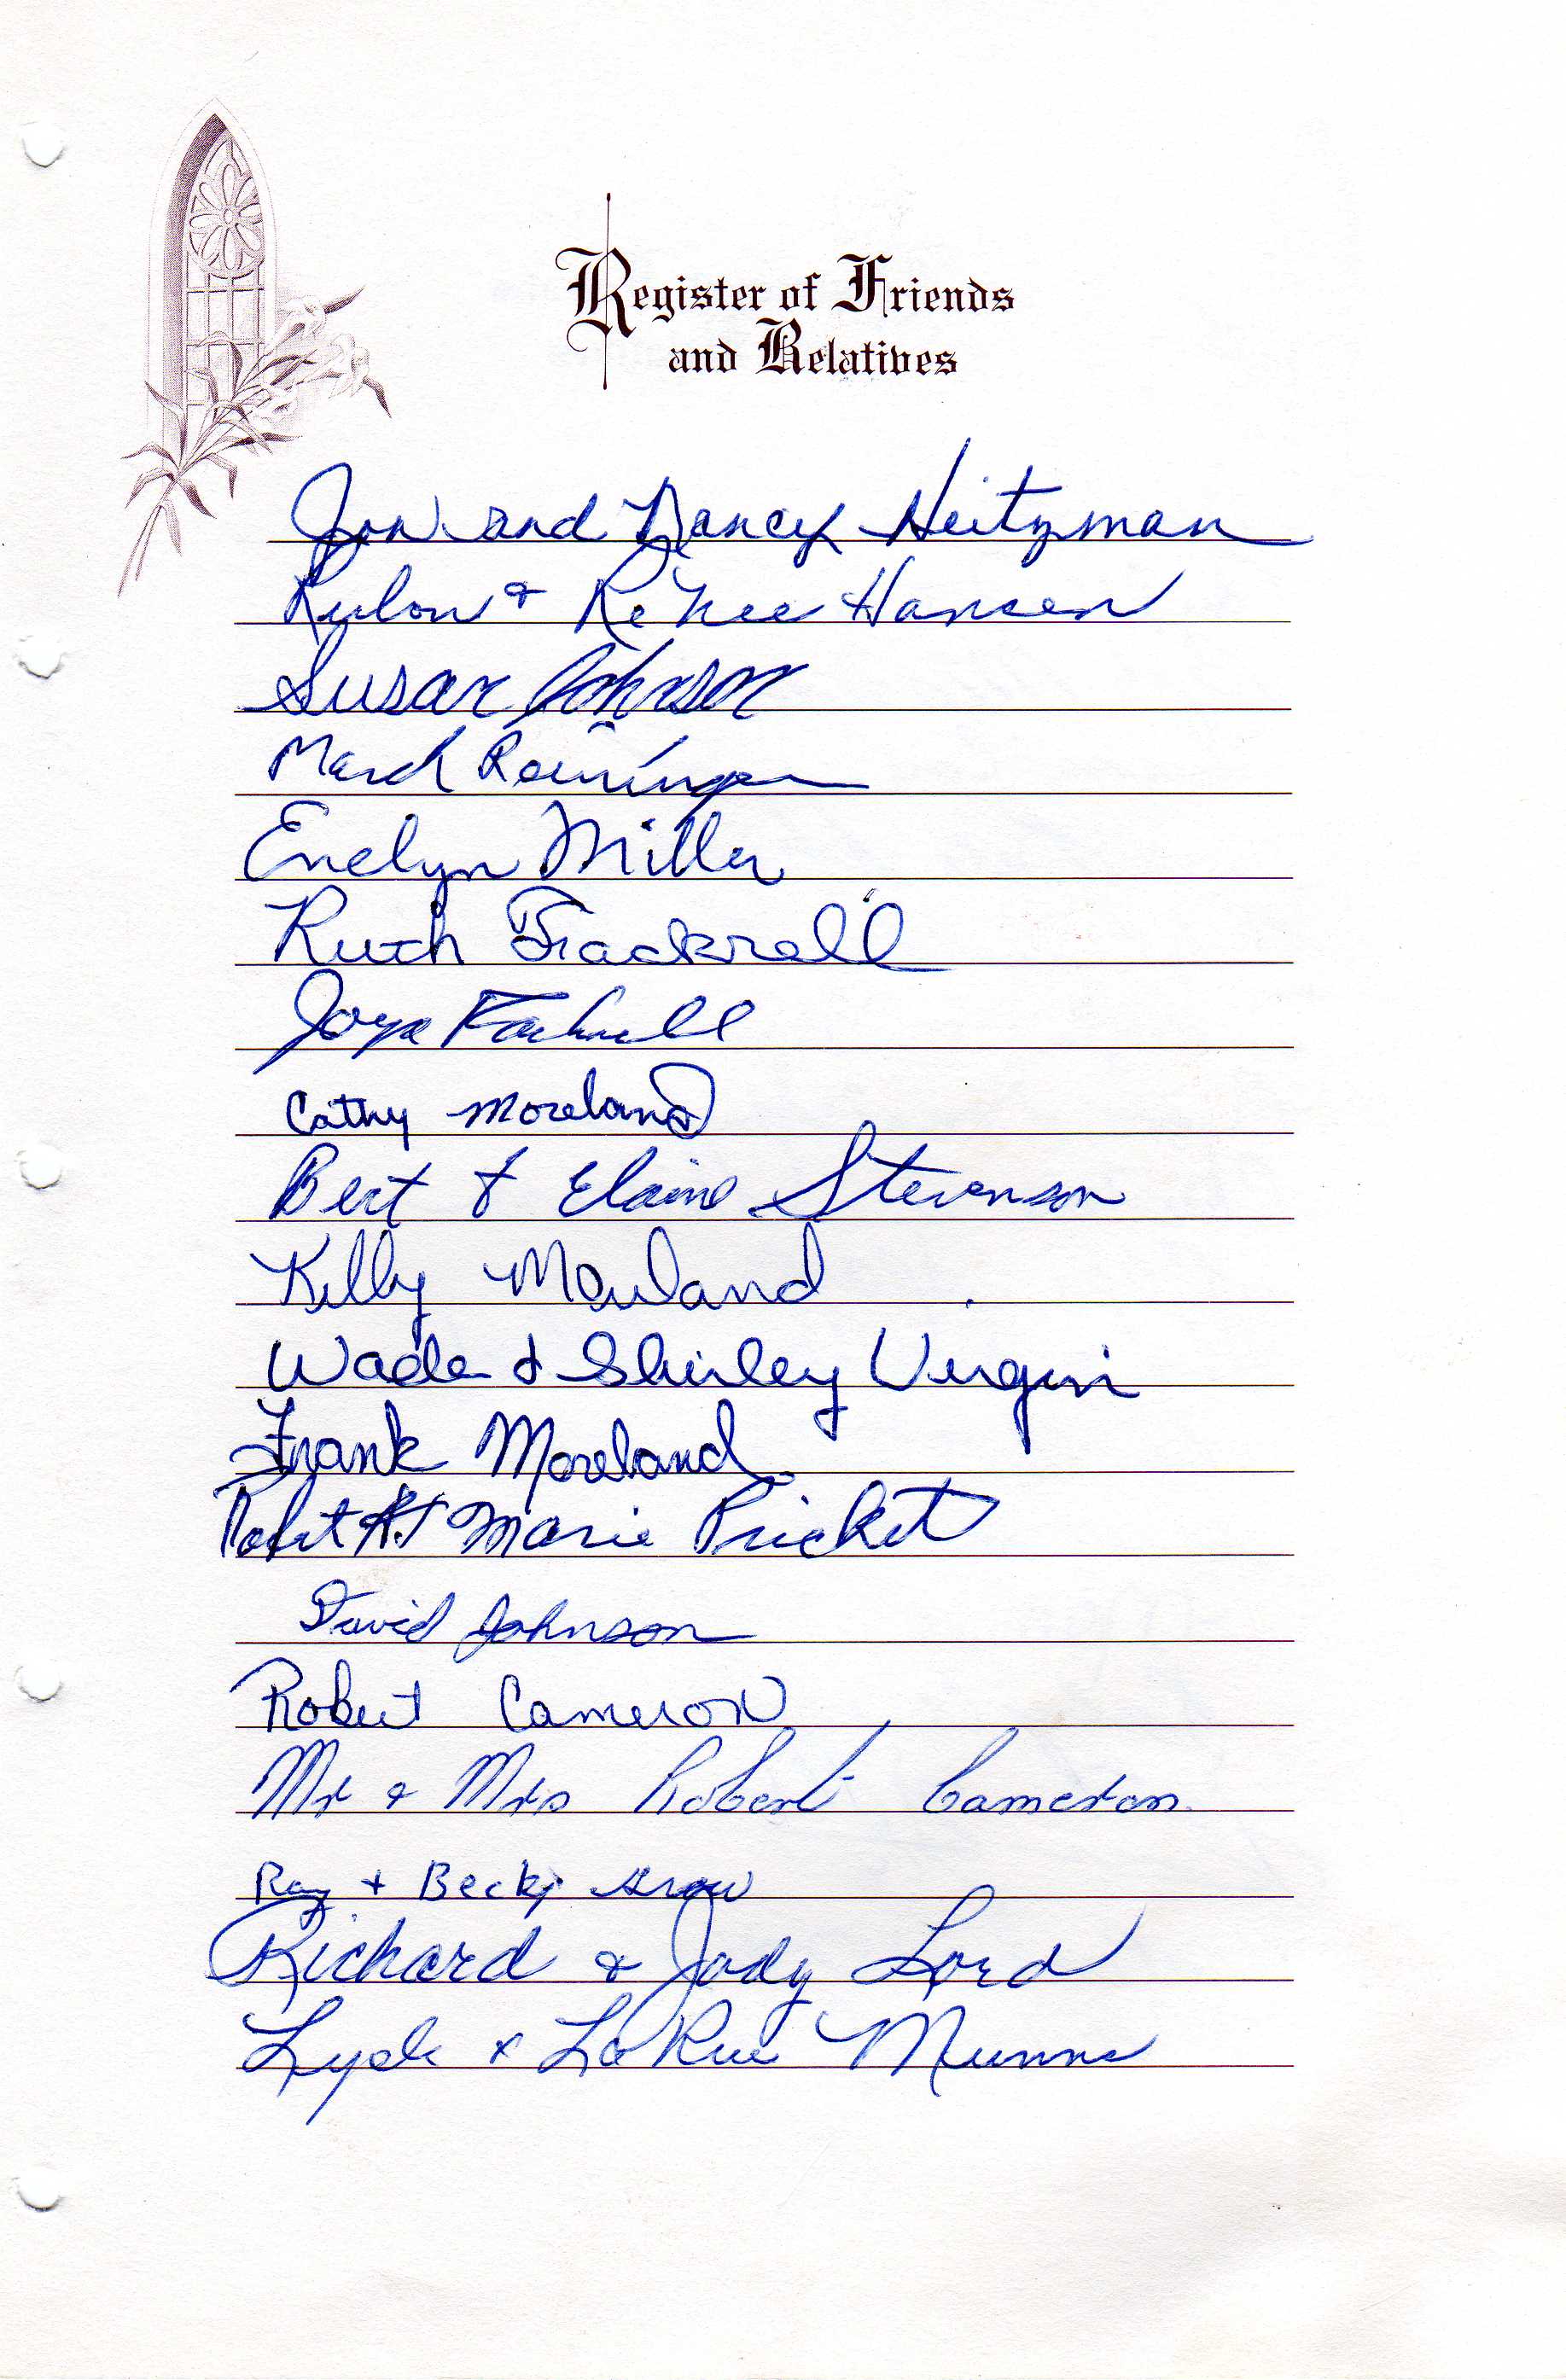 Register of Friends
and Relatives
Jon and Nancy Heitzman
Rulon & ReNee Hansen
Susan Johnson
Reininger
Evelyn Miller
Ruth Frackrell
Joya
Cathy Moreland
Bert & Elaine Stevenson
Kelly Moreland
Wade & Shirley Virgin
Frank Moreland
Robert Marie Pricket
David Johnson
Robert Cameron
Mr & Mrs Robert Cameron
Ray + Becky Grow
Richard & Jody Lord
Lyle & LaRue Munns